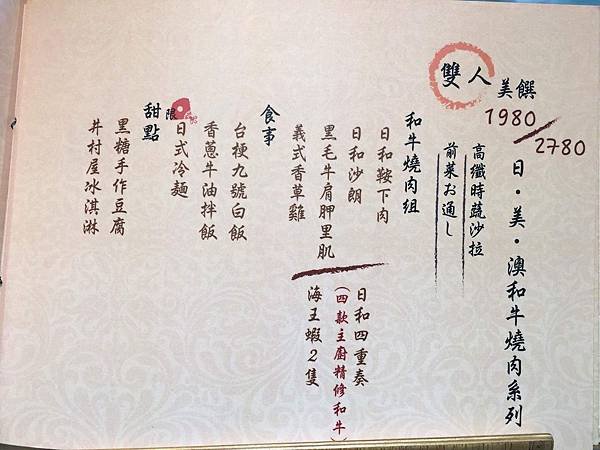 雙人美饌
1980/2780
日・美・澳和牛燒肉系列
高纖時蔬沙拉
前菜お通し
和牛燒肉組
日和鞍下肉
日和沙朗
黑毛牛肩胛里肌
義式香草雞
日和四重奏
(四款主廚精修和牛)
海王蝦2隻
食事
台梗九號白飯
香蔥牛油拌飯
限
日式冷麵
甜點
黑糖手作豆腐
井村屋冰淇淋